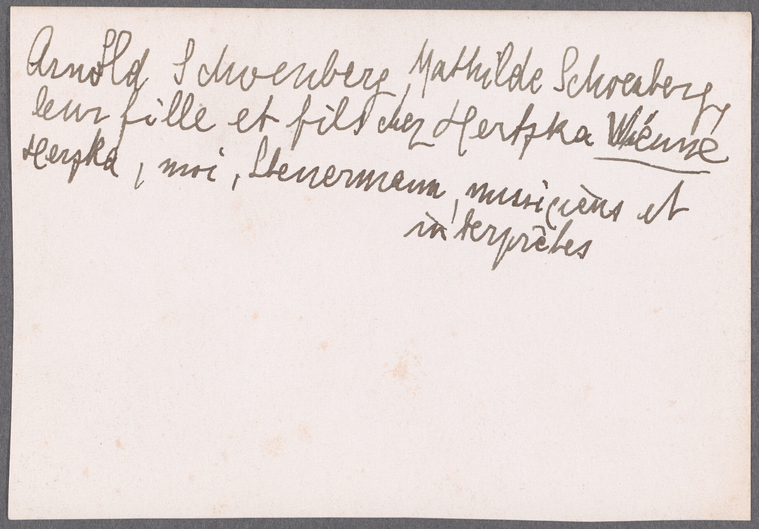 Arnold Schoenberg, Mathilde Schoenberg,
leur fille et fils chez Hertzka Vienne
Herzka, moi, Steuermann, musiciens et
interprètes